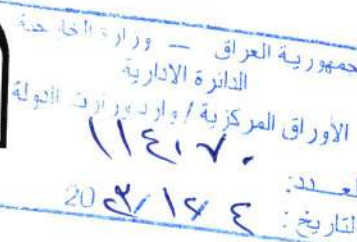 جمهورية العراق — وزارة الخارجية
الدائرة الادارية
الأوراق المركزية / وارد وزارات الدولة
العدد: ١١٤٠٧٠
التاريخ: ٤ / ١٢ / 20٢٣